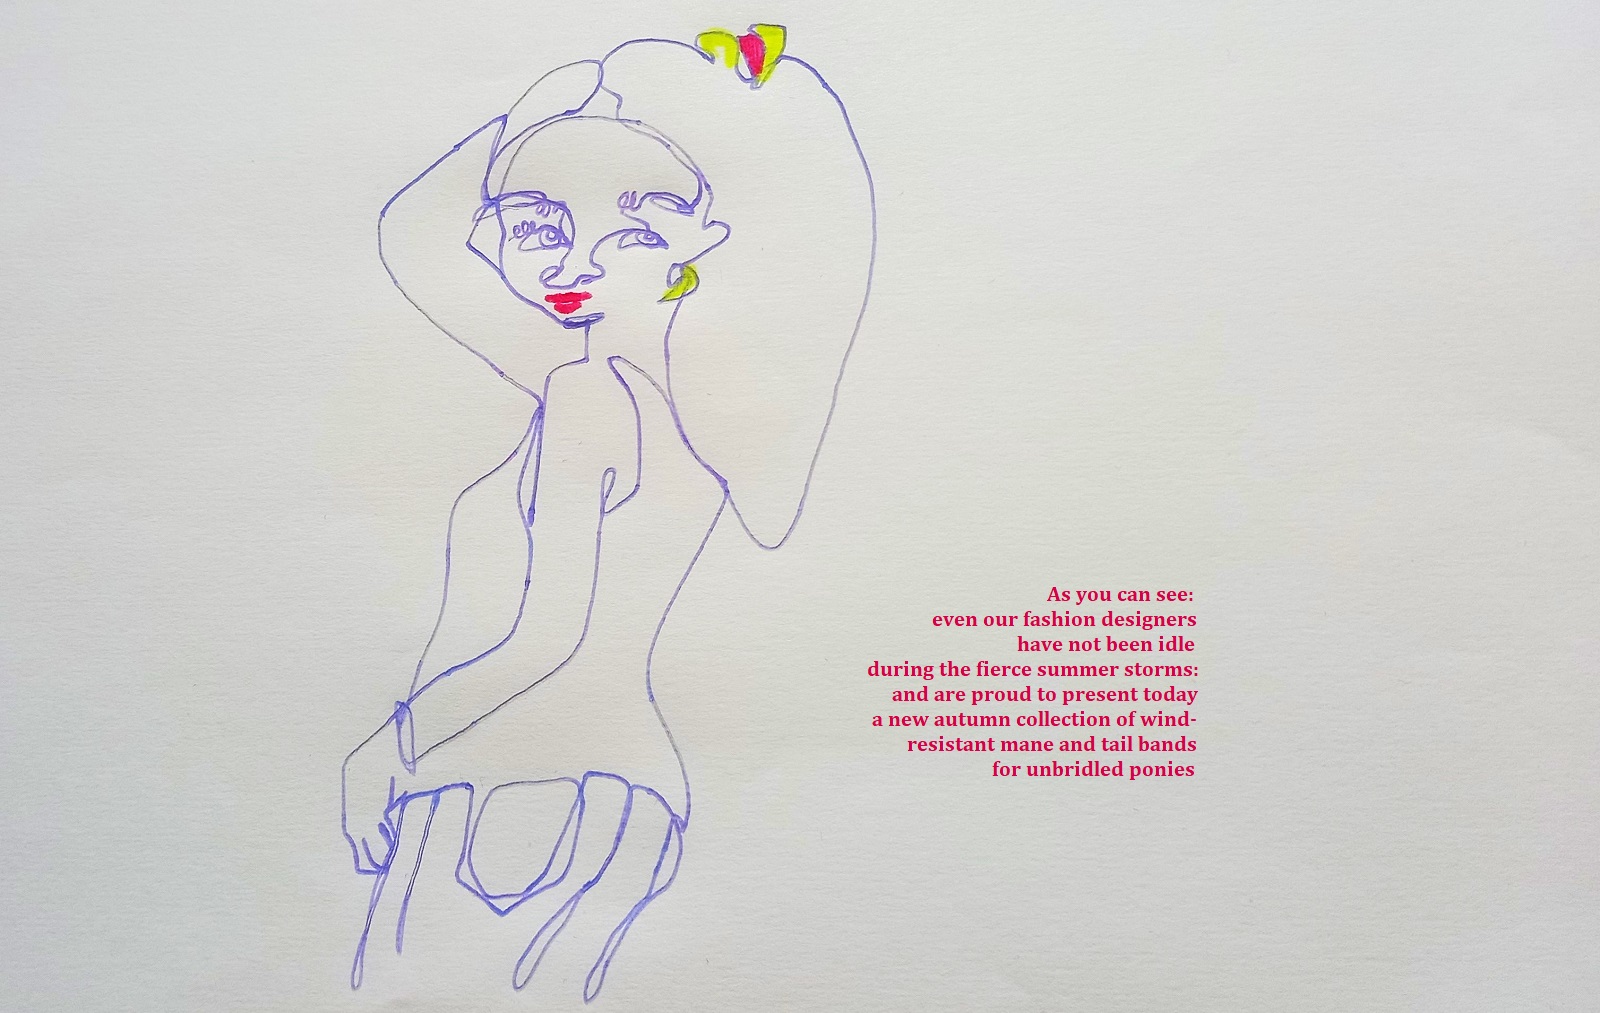 As you can see:
even our fashion designers
have not been idle
during the fierce summer storms:
and are proud to present today
a new autumn collection of wind-
resistant mane and tail bands
for unbridled ponies